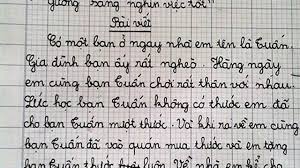 gương sáng nghìn việc tốt"
Bài viết
Có một bạn ở ngay nhà em tên là Tuấn.
Gia đình bạn ấy rất nghèo. Hàng ngày
em cùng bạn Tuấn chơi rất thân với nhau.
Lúc học bạn Tuấn không có thước em đã
cho bạn Tuấn mượt thước. Và khi ra về em cùng
bạn Tuấn đã vào quán mua thước và em tặng
bạn Tuấn thước luôn. Về nhà em kể cho